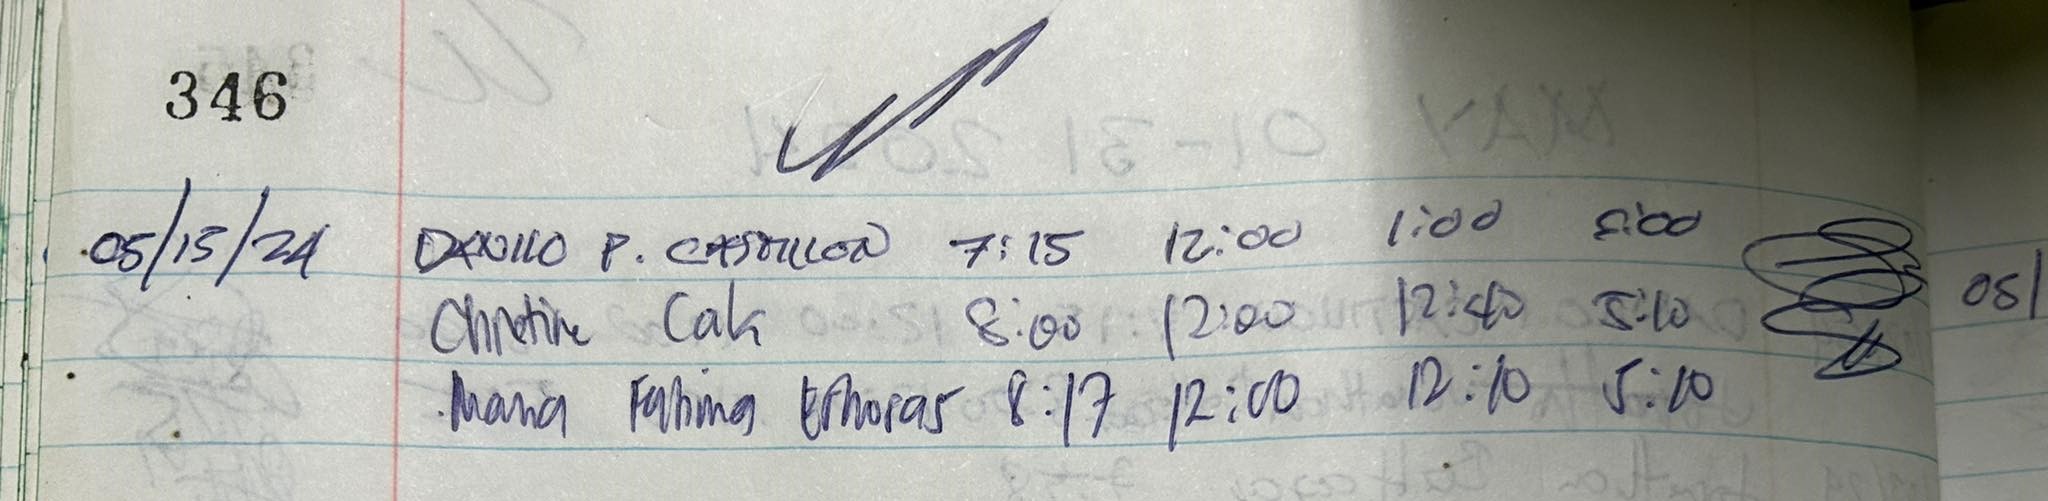 346
05/15/24 DANILO P. CASTILLON 7:15 12:00 1:00 5:00
Christine Cak 8:00 12:00 12:40 5:10
Maria Fatima 8:17 12:00 12:10 5:10
05/